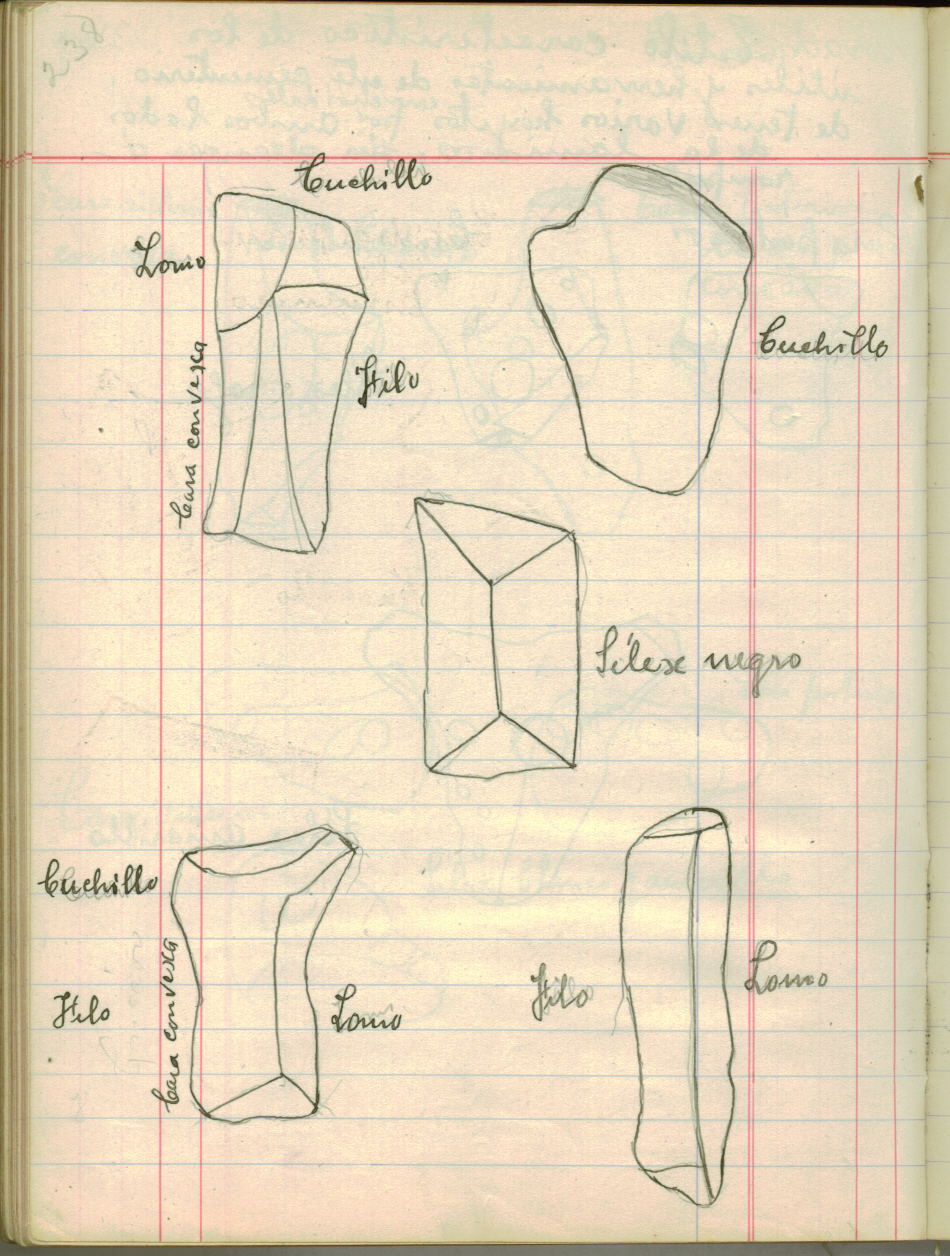 238
Cuchillo
Lomo
Hilo
Cara convexa
Cuchillo
Sílex negro
Cuchillo
Cara convexa
Hilo
Lomo
Hilo
Lomo